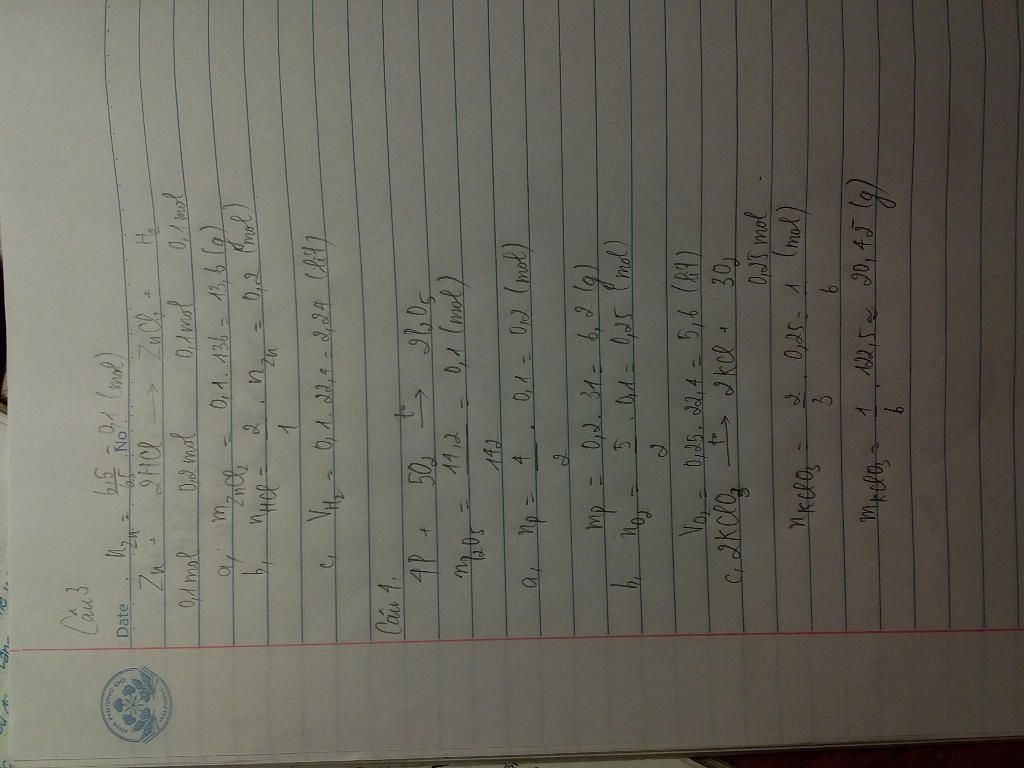 Câu 3
Date No
n Zn = 6,5/65 = 0,1 (mol)
Zn + 2HCl → ZnCl2 + H2
0,1mol 0,2mol 0,1mol 0,1mol
a, m ZnCl2 = 0,1.136 = 13,6 (g)
b, nHCl = 2/1 . n Zn = 0,2 (mol)
c, VH2 = 0,1.22,4 = 2,24 (lít)
Câu 4.
4P + 5O2 t° → 2P2O5
nP2O5 = 14,2/142 = 0,1 (mol)
a, nP = 4/2 . 0,1 = 0,2 (mol)
mP = 0,2.31 = 6,2 (g)
b, nO2 = 5/2 . 0,1 = 0,25 (mol)
VO2 = 0,25.22,4 = 5,6 (lít)
c, 2KClO3 t° → 2KCl + 3O2
0,25mol
nKClO3 = 2/3 . 0,25 = 1/6 (mol)
mKClO3 = 1/6 . 122,5 ≈ 20,42 (g)